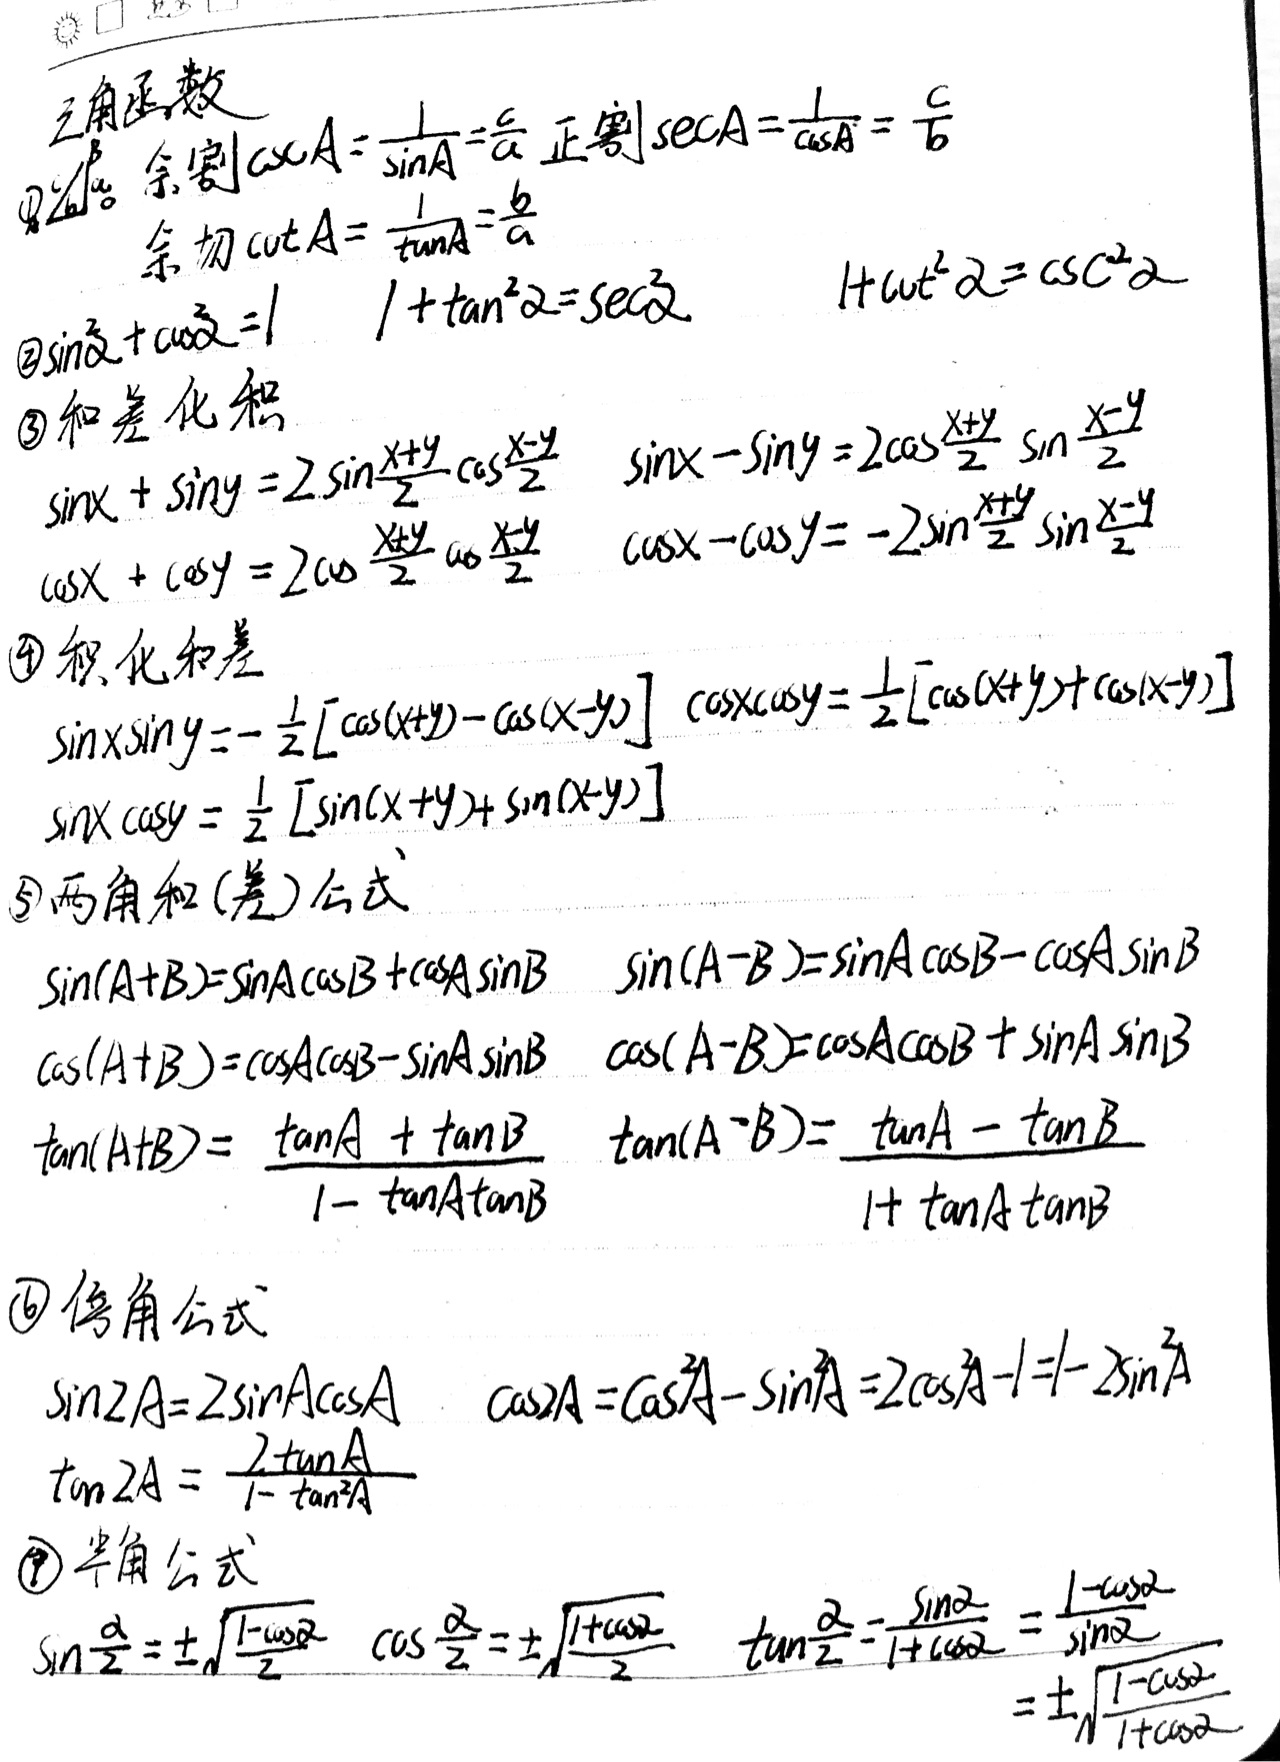 三角函数
① 余割cscA=1/sinA=c/a 正割secA=1/cosA=c/b
余切cotA=1/tanA=b/a
②sin²α+cos²α=1 1+tan²α=sec²α 1+cot²α=csc²α
③和差化积
sinx+siny=2sin(x+y)/2 cos(x-y)/2 sinx-siny=2cos(x+y)/2 sin(x-y)/2
cosx+cosy=2cos(x+y)/2 cos(x-y)/2 cosx-cosy=-2sin(x+y)/2 sin(x-y)/2
④积化和差
sinxsiny=-1/2[cos(x+y)-cos(x-y)] cosxcosy=1/2[cos(x+y)+cos(x-y)]
sinxcosy=1/2[sin(x+y)+sin(x-y)]
⑤两角和(差)公式
sin(A+B)=sinAcosB+cosAsinB sin(A-B)=sinAcosB-cosAsinB
cos(A+B)=cosAcosB-sinAsinB cos(A-B)=cosAcosB+sinAsinB
tan(A+B)=(tanA+tanB)/(1-tanAtanB) tan(A-B)=(tanA-tanB)/(1+tanAtanB)
⑥倍角公式
sin2A=2sinAcosA cos2A=cos²A-sin²A=2cos²A-1=1-2sin²A
tan2A=2tanA/(1-tan²A)
⑦半角公式
sin α/2=±√((1-cosα)/2) cos α/2=±√((1+cosα)/2) tan α/2=sinα/(1+cosα)=(1-cosα)/sinα
=±√((1-cosα)/(1+cosα))